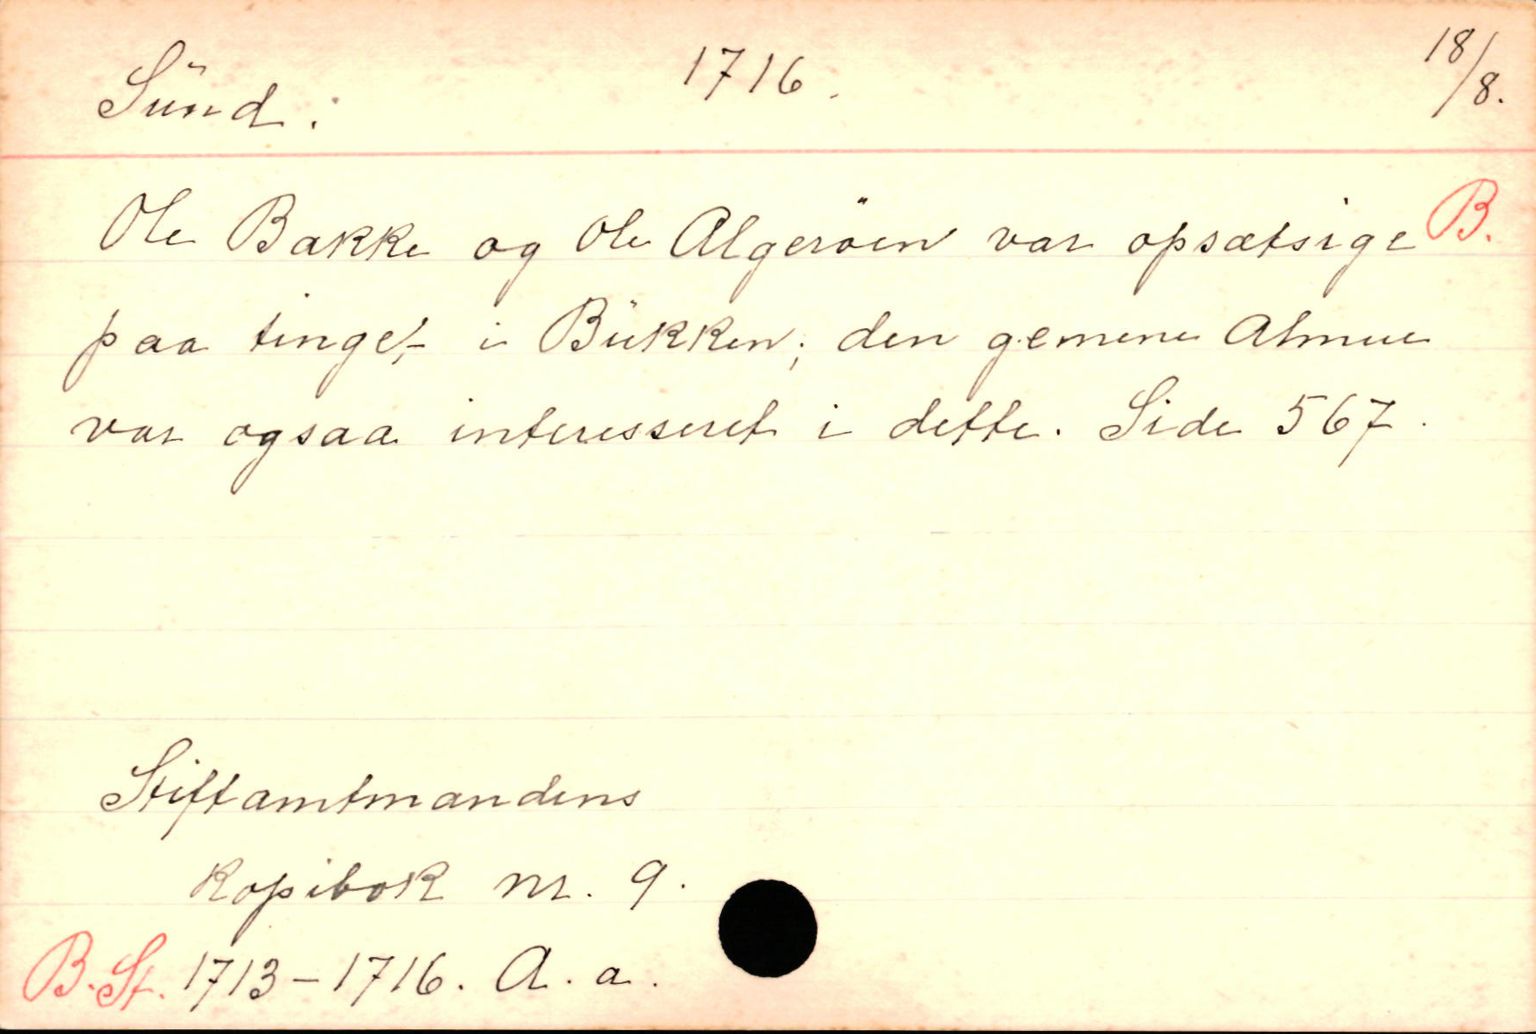 Sünd. 1716. 18/8.
Ole Bakke og Ole Algeröen var opsætsige B.
paa tinget i Bükken; den gemene Almue
var ogsaa interesseret i dette. Side 567.
Stiftamtmandens
kopibok nr. 9.
B. St. 1713-1716. A. a.